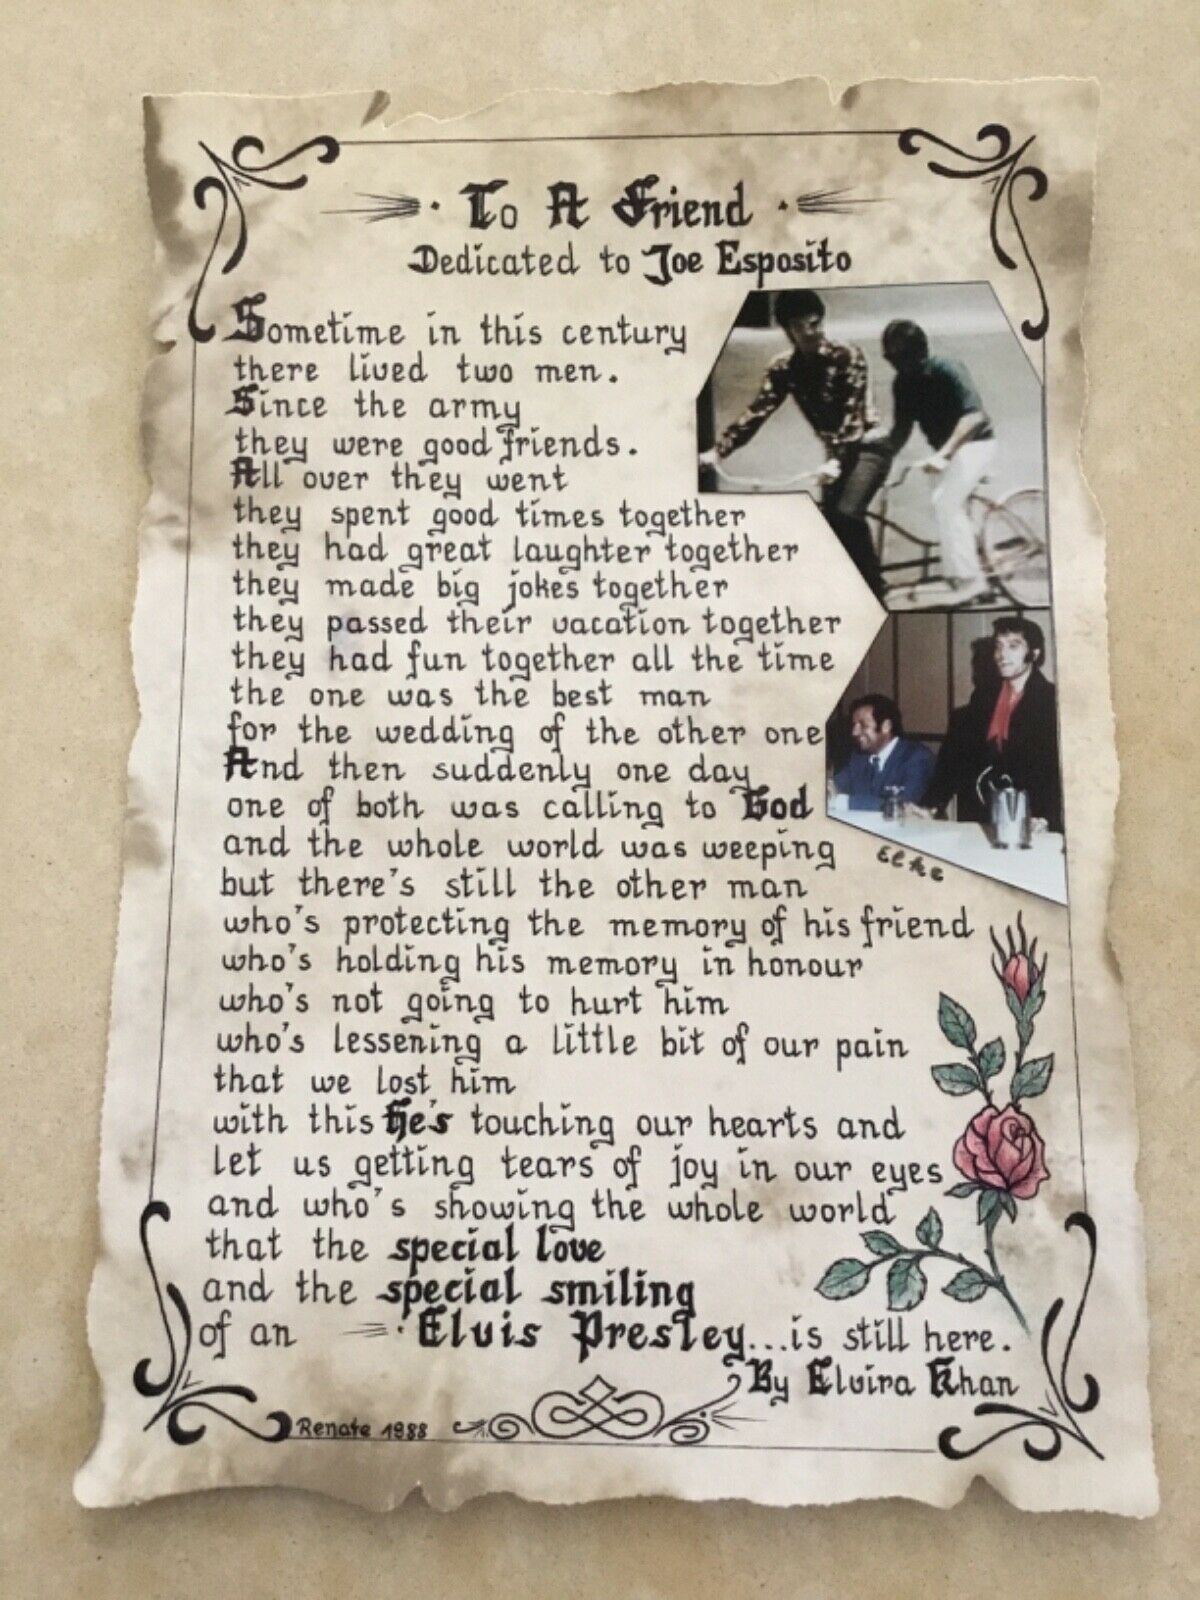 To A Friend
Dedicated to Joe Esposito
Sometime in this century
there lived two men.
Since the army
they were good friends.
All over they went
they spent good times together
they had great laughter together
they made big jokes together
they passed their vacation together
they had fun together all the time
the one was the best man
for the wedding of the other one
And then suddenly one day
one of both was calling to God
and the whole world was weeping
but there's still the other man
who's protecting the memory of his friend
who's holding his memory in honour
who's not going to hurt him
who's lessening a little bit of our pain
that we lost him
with this He's touching our hearts and
let us getting tears of joy in our eyes
and who's showing the whole world
that the special love
and the special smiling
of an Elvis Presley...is still here.
By Elvira Khan
Renate 1988
Elke